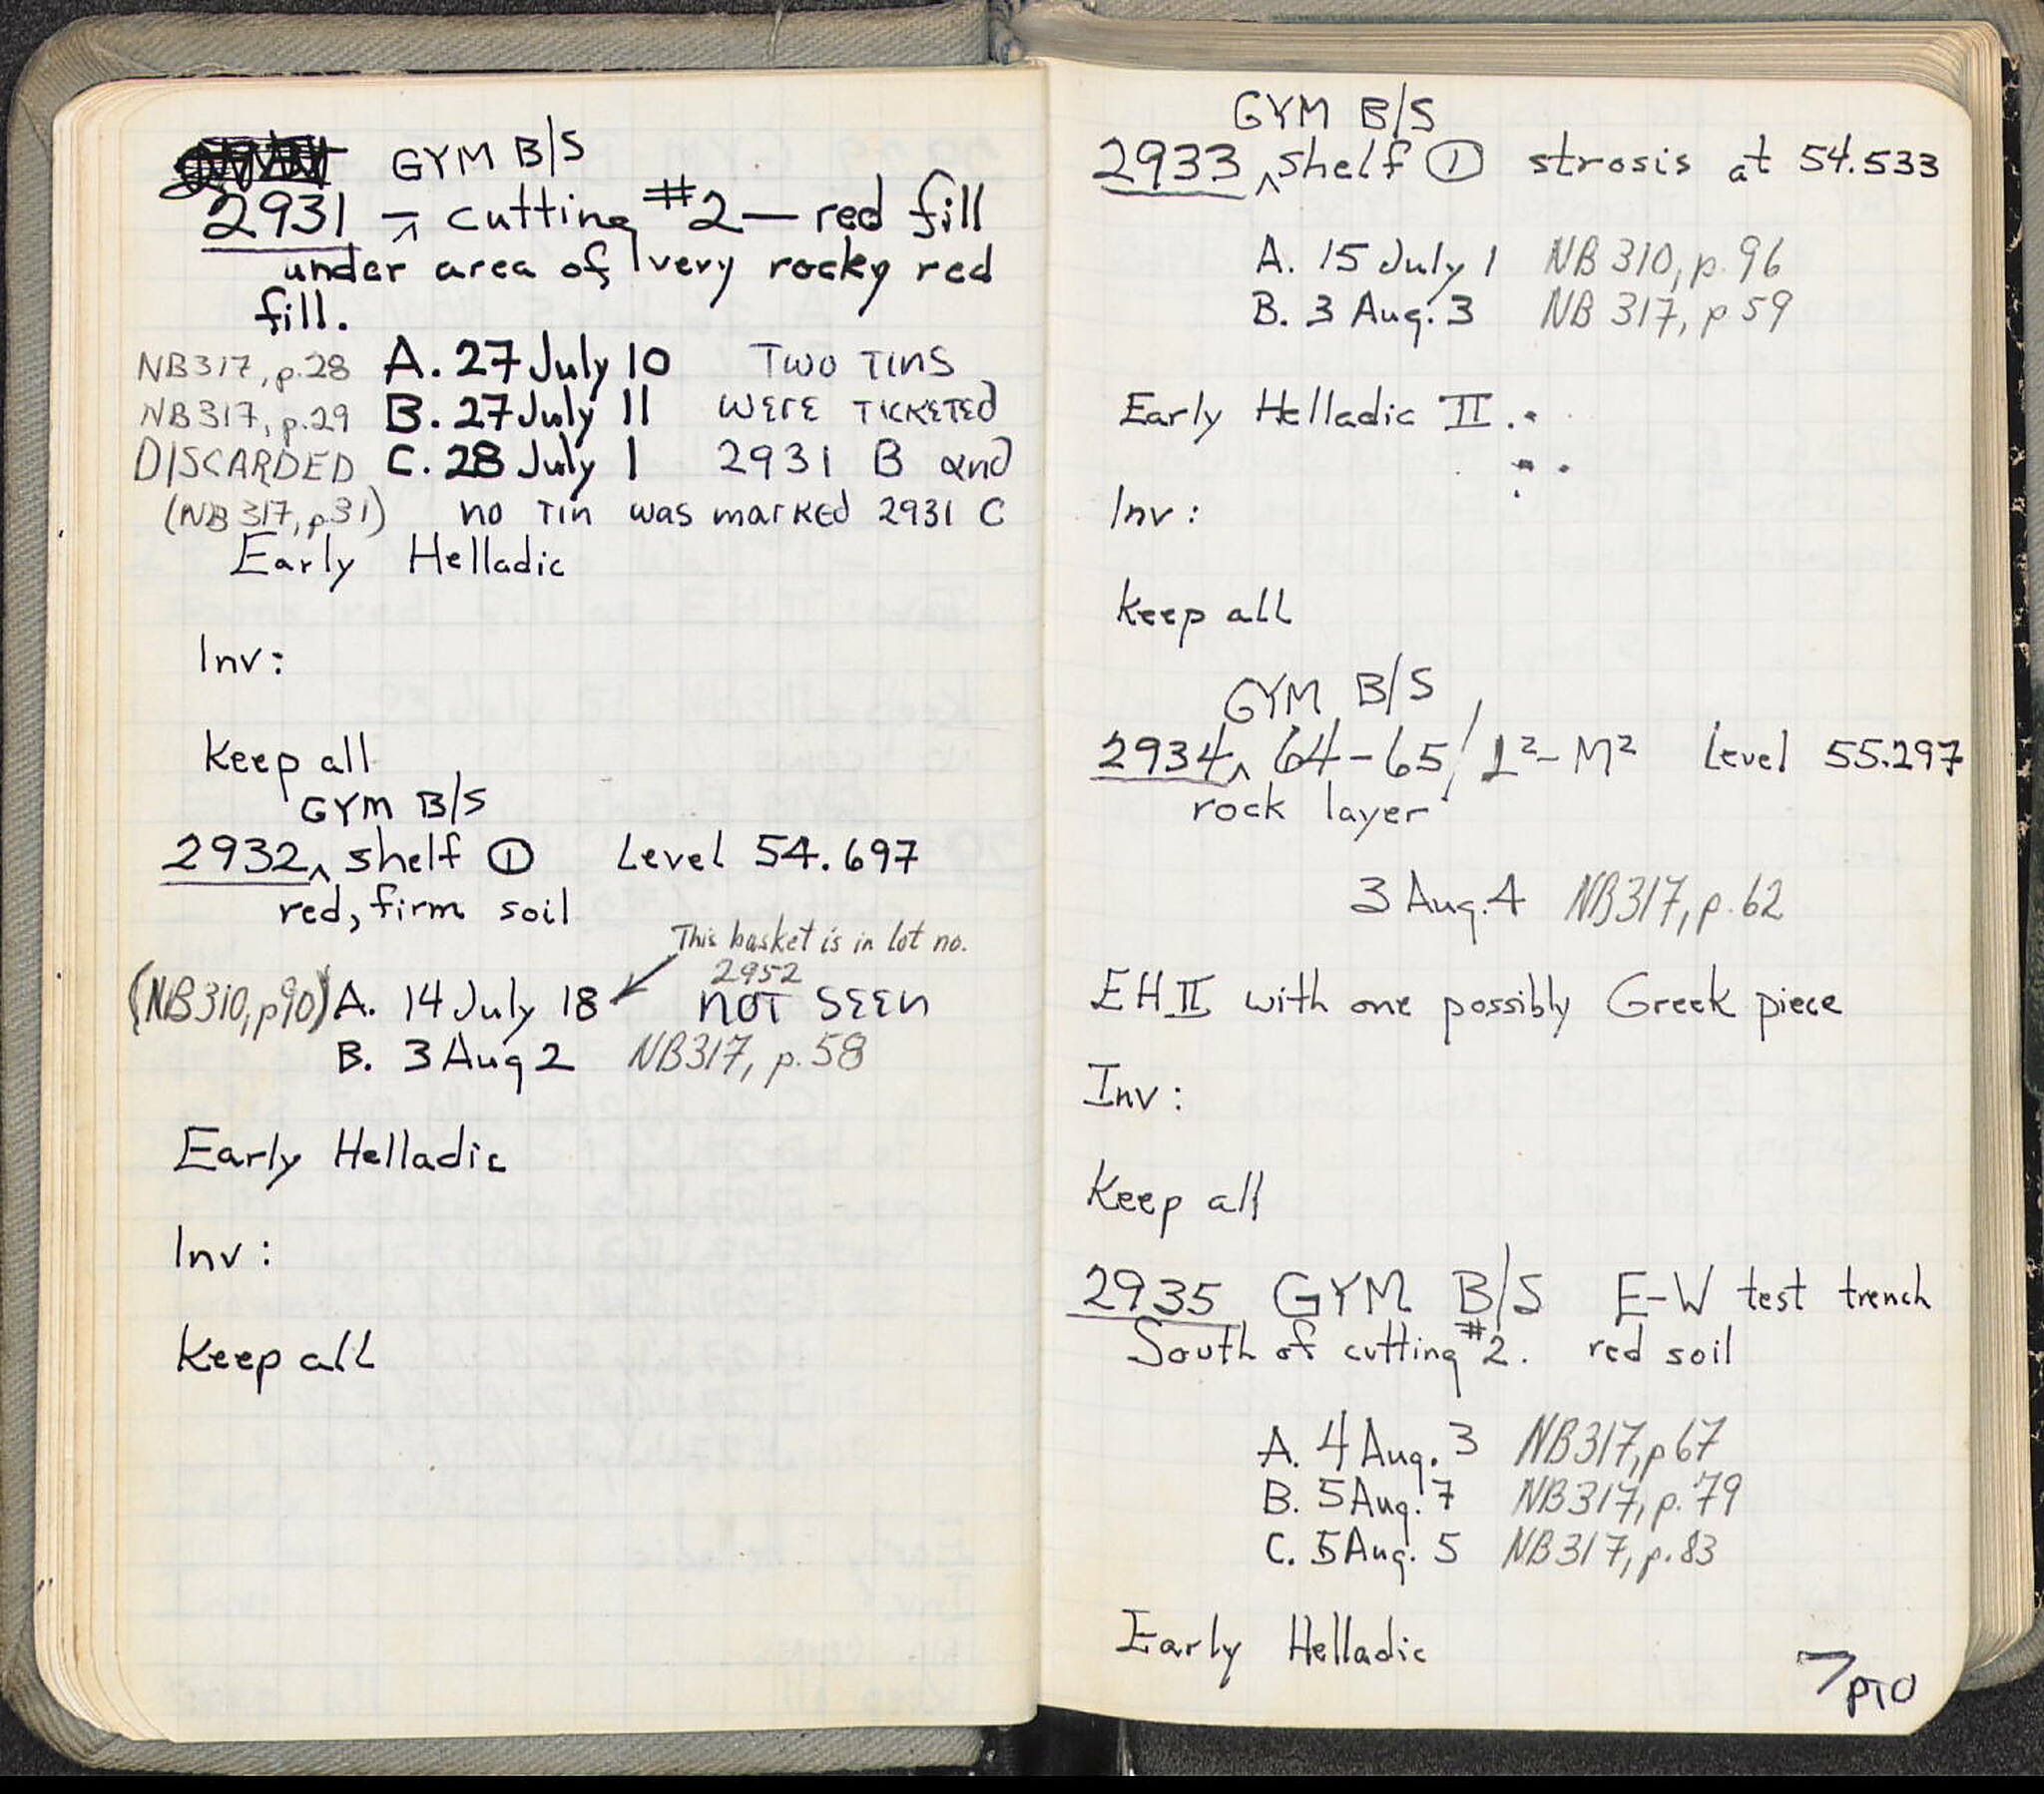 GYM B/S
2931 – cutting #2 — red fill
under area of very rocky red
fill.
NB317, p.28 A. 27 July 10 Two Tins
NB317, p.29 B. 27 July 11 were ticketed
DISCARDED C. 28 July 1 2931 B and
(NB317, p31) no Tin was marked 2931 C
Early Helladic
Inv:
Keep all
GYM B/S
2932 ^ shelf ① Level 54.697
red, firm soil
This basket is in lot no.
2952
(NB310, p90) A. 14 July 18 NOT SEEN
B. 3 Aug 2 NB317, p. 58
Early Helladic
Inv:
Keep all
GYM B/S
2933 ^ shelf ① strosis at 54.533
A. 15 July 1 NB 310, p. 96
B. 3 Aug. 3 NB 317, p 59
Early Helladic II.
Inv:
Keep all
GYM B/S
2934 ^ 64-65/L²-M² Level 55.297
rock layer
3 Aug. 4 NB317, p. 62
EH II with one possibly Greek piece
Inv:
Keep all
2935 GYM B/S E-W test trench
South of cutting #2. red soil
A. 4 Aug. 3 NB317, p 67
B. 5 Aug. 7 NB317, p. 79
C. 5 Aug. 5 NB317, p. 83
Early Helladic
PTO